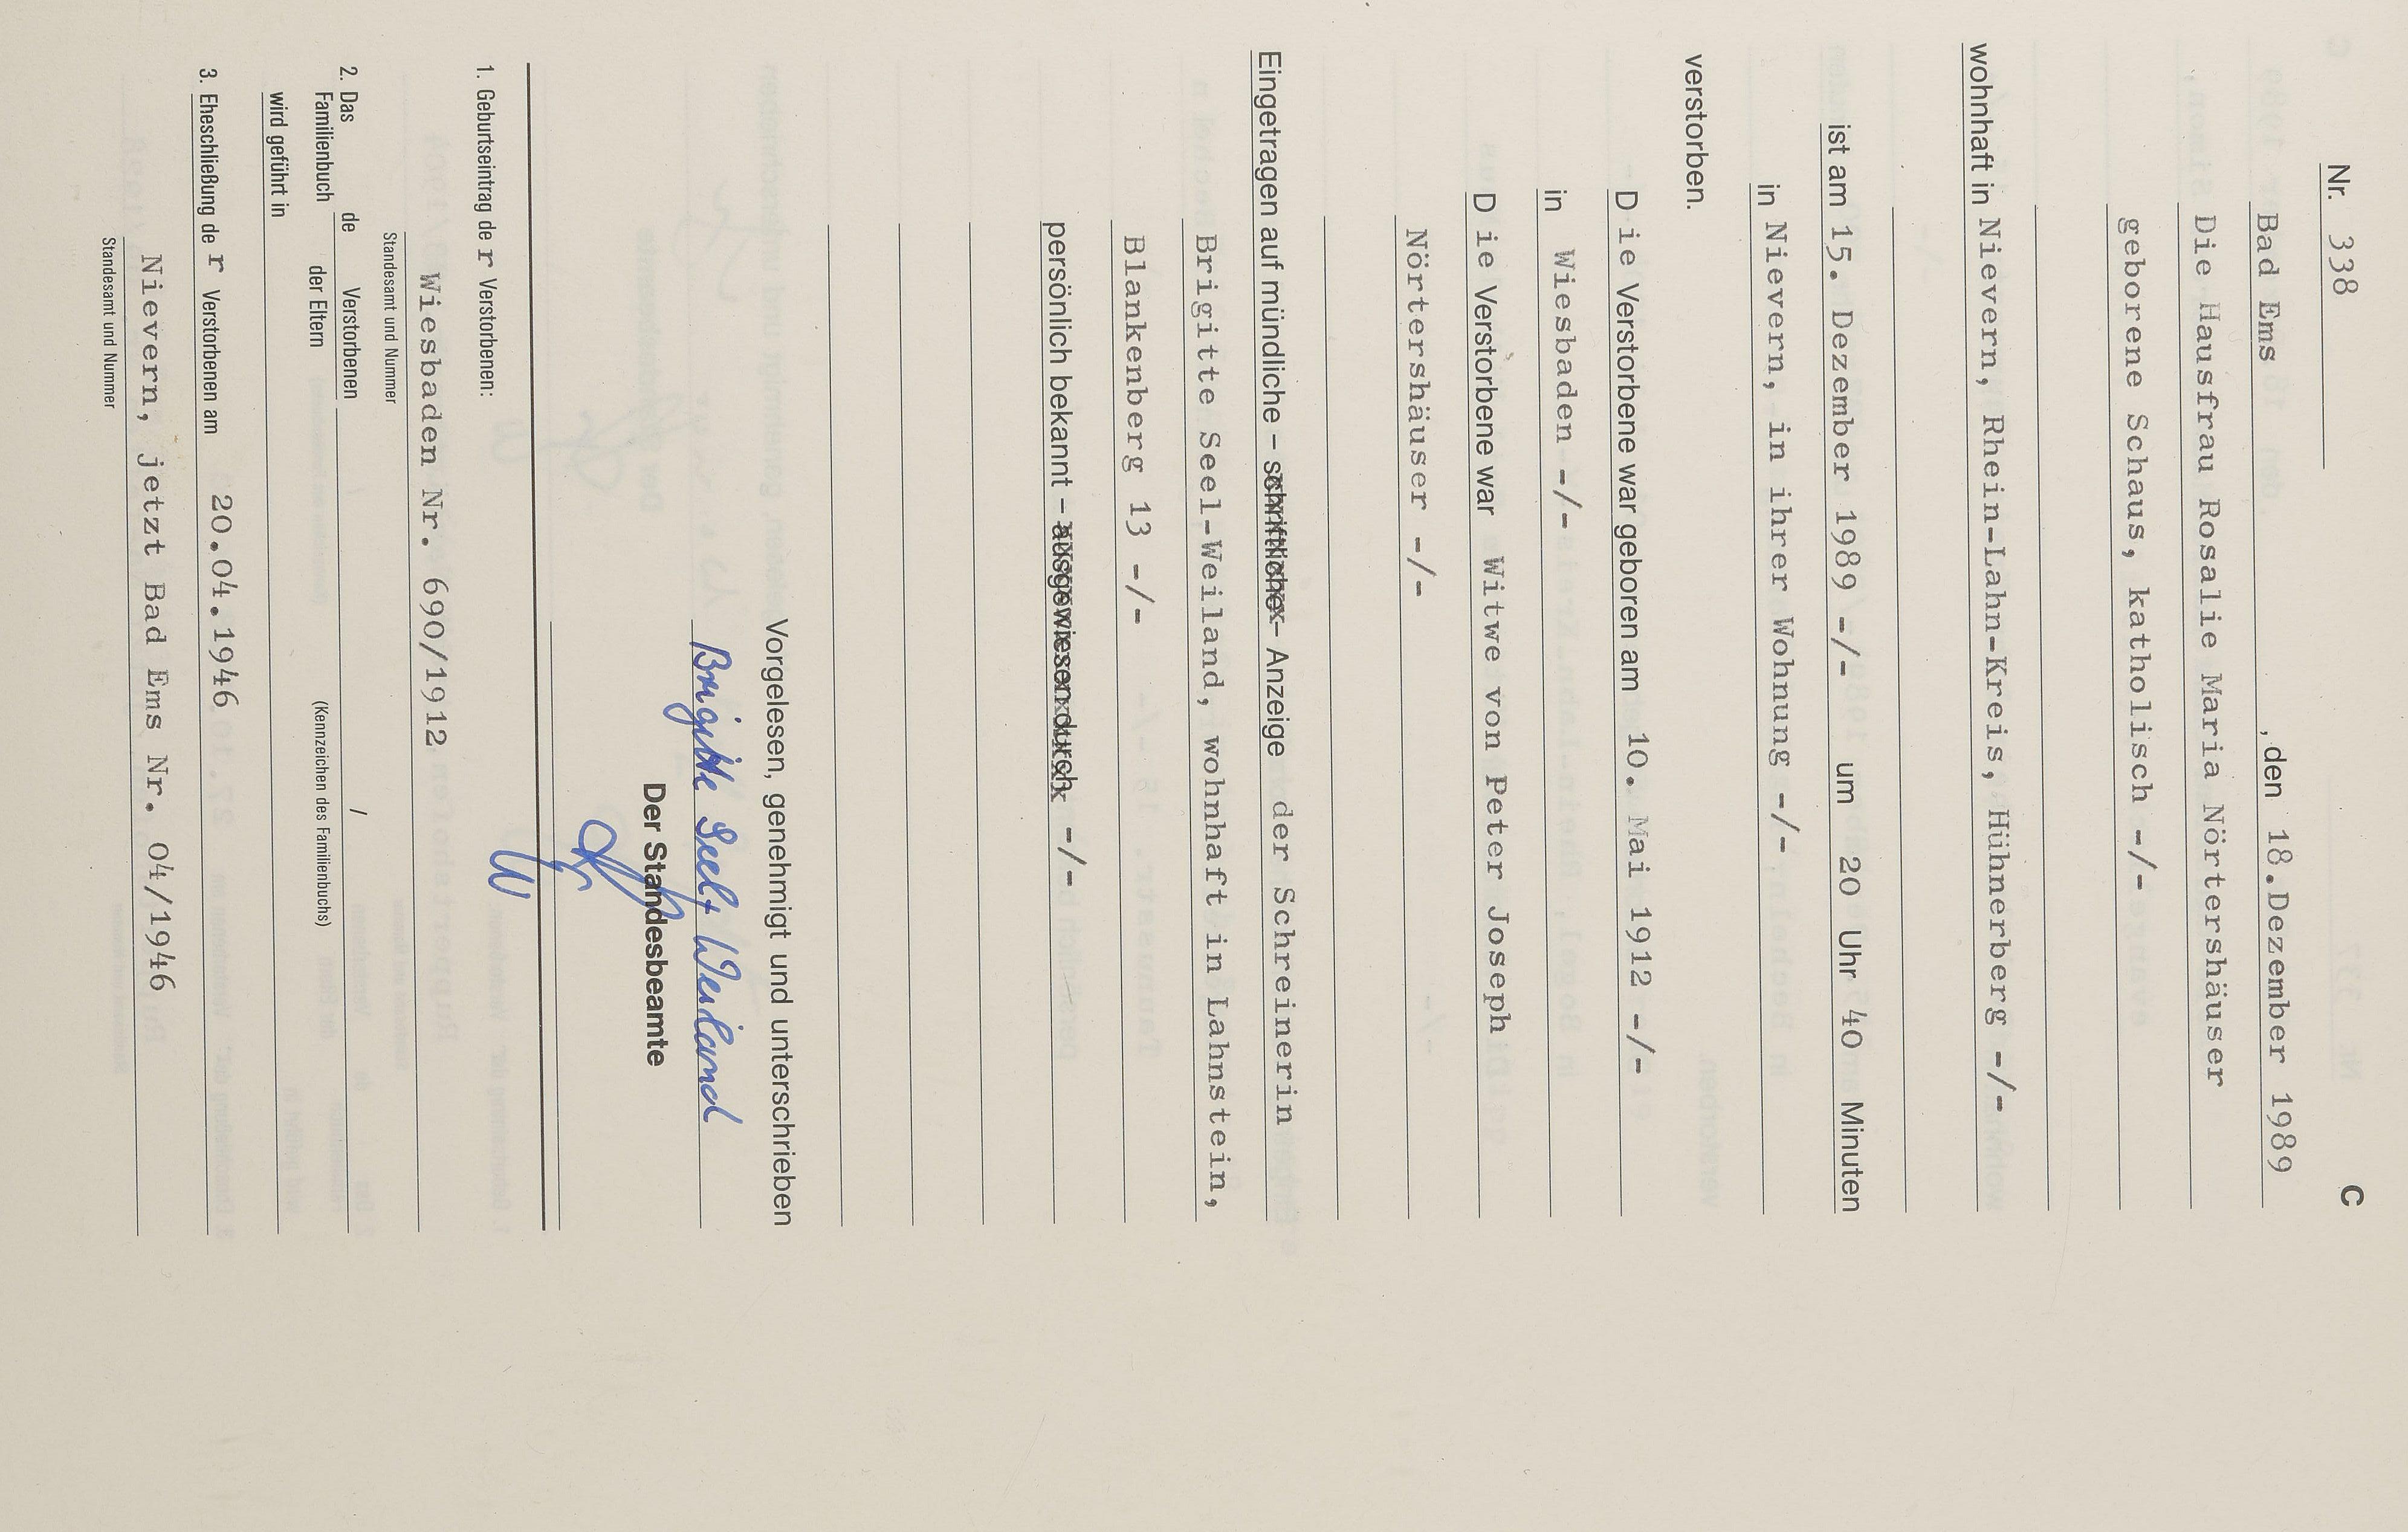 C
Nr. 338
Bad Ems , den 18.Dezember 1989
Die Hausfrau Rosalie Maria Nörtershäuser
geborene Schaus, katholisch -/-
wohnhaft in Nievern, Rhein-Lahn-Kreis, Hühnerberg -/-
ist am 15. Dezember 1989 -/- um 20 Uhr 40 Minuten
in Nievern, in ihrer Wohnung -/-
verstorben.
Die Verstorbene war geboren am 10. Mai 1912 -/-
in Wiesbaden -/-
Die Verstorbene war Witwe von Peter Joseph
Nörtershäuser -/-
Eingetragen auf mündliche – schriftliche – Anzeige der Schreinerin
Brigitte Seel-Weiland, wohnhaft in Lahnstein,
Blankenberg 13 -/-
persönlich bekannt – ausgewiesen durch -/-
Vorgelesen, genehmigt und unterschrieben
Brigitte Seel-Weiland
Der Standesbeamte
1. Geburtseintrag der Verstorbenen:
Wiesbaden Nr. 690/1912
Standesamt und Nummer
2. Das Familienbuch de Verstorbenen / der Eltern
(Kennzeichen des Familienbuchs)
wird geführt in
3. Eheschließung der Verstorbenen am 20.04.1946
Nievern, jetzt Bad Ems Nr. 04/1946
Standesamt und Nummer